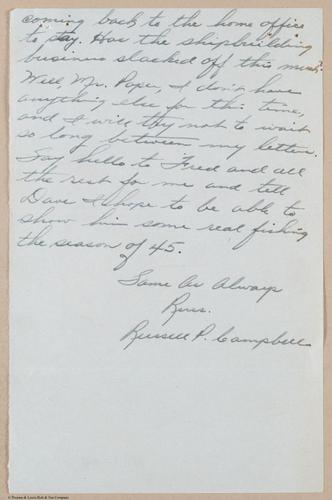 coming back to the home office
to stay. Has the shipbuilding
business slacked off this much?
Well, Mr. Pope, I don't have
anything else for this time,
and I will try not to wait
so long between my letters.
Say hello to Fred and all
the rest for me and tell
Dave I hope to be able to
show him some real fishing
the season of 45.
Same As Always
Russ.
Russell P. Campbell